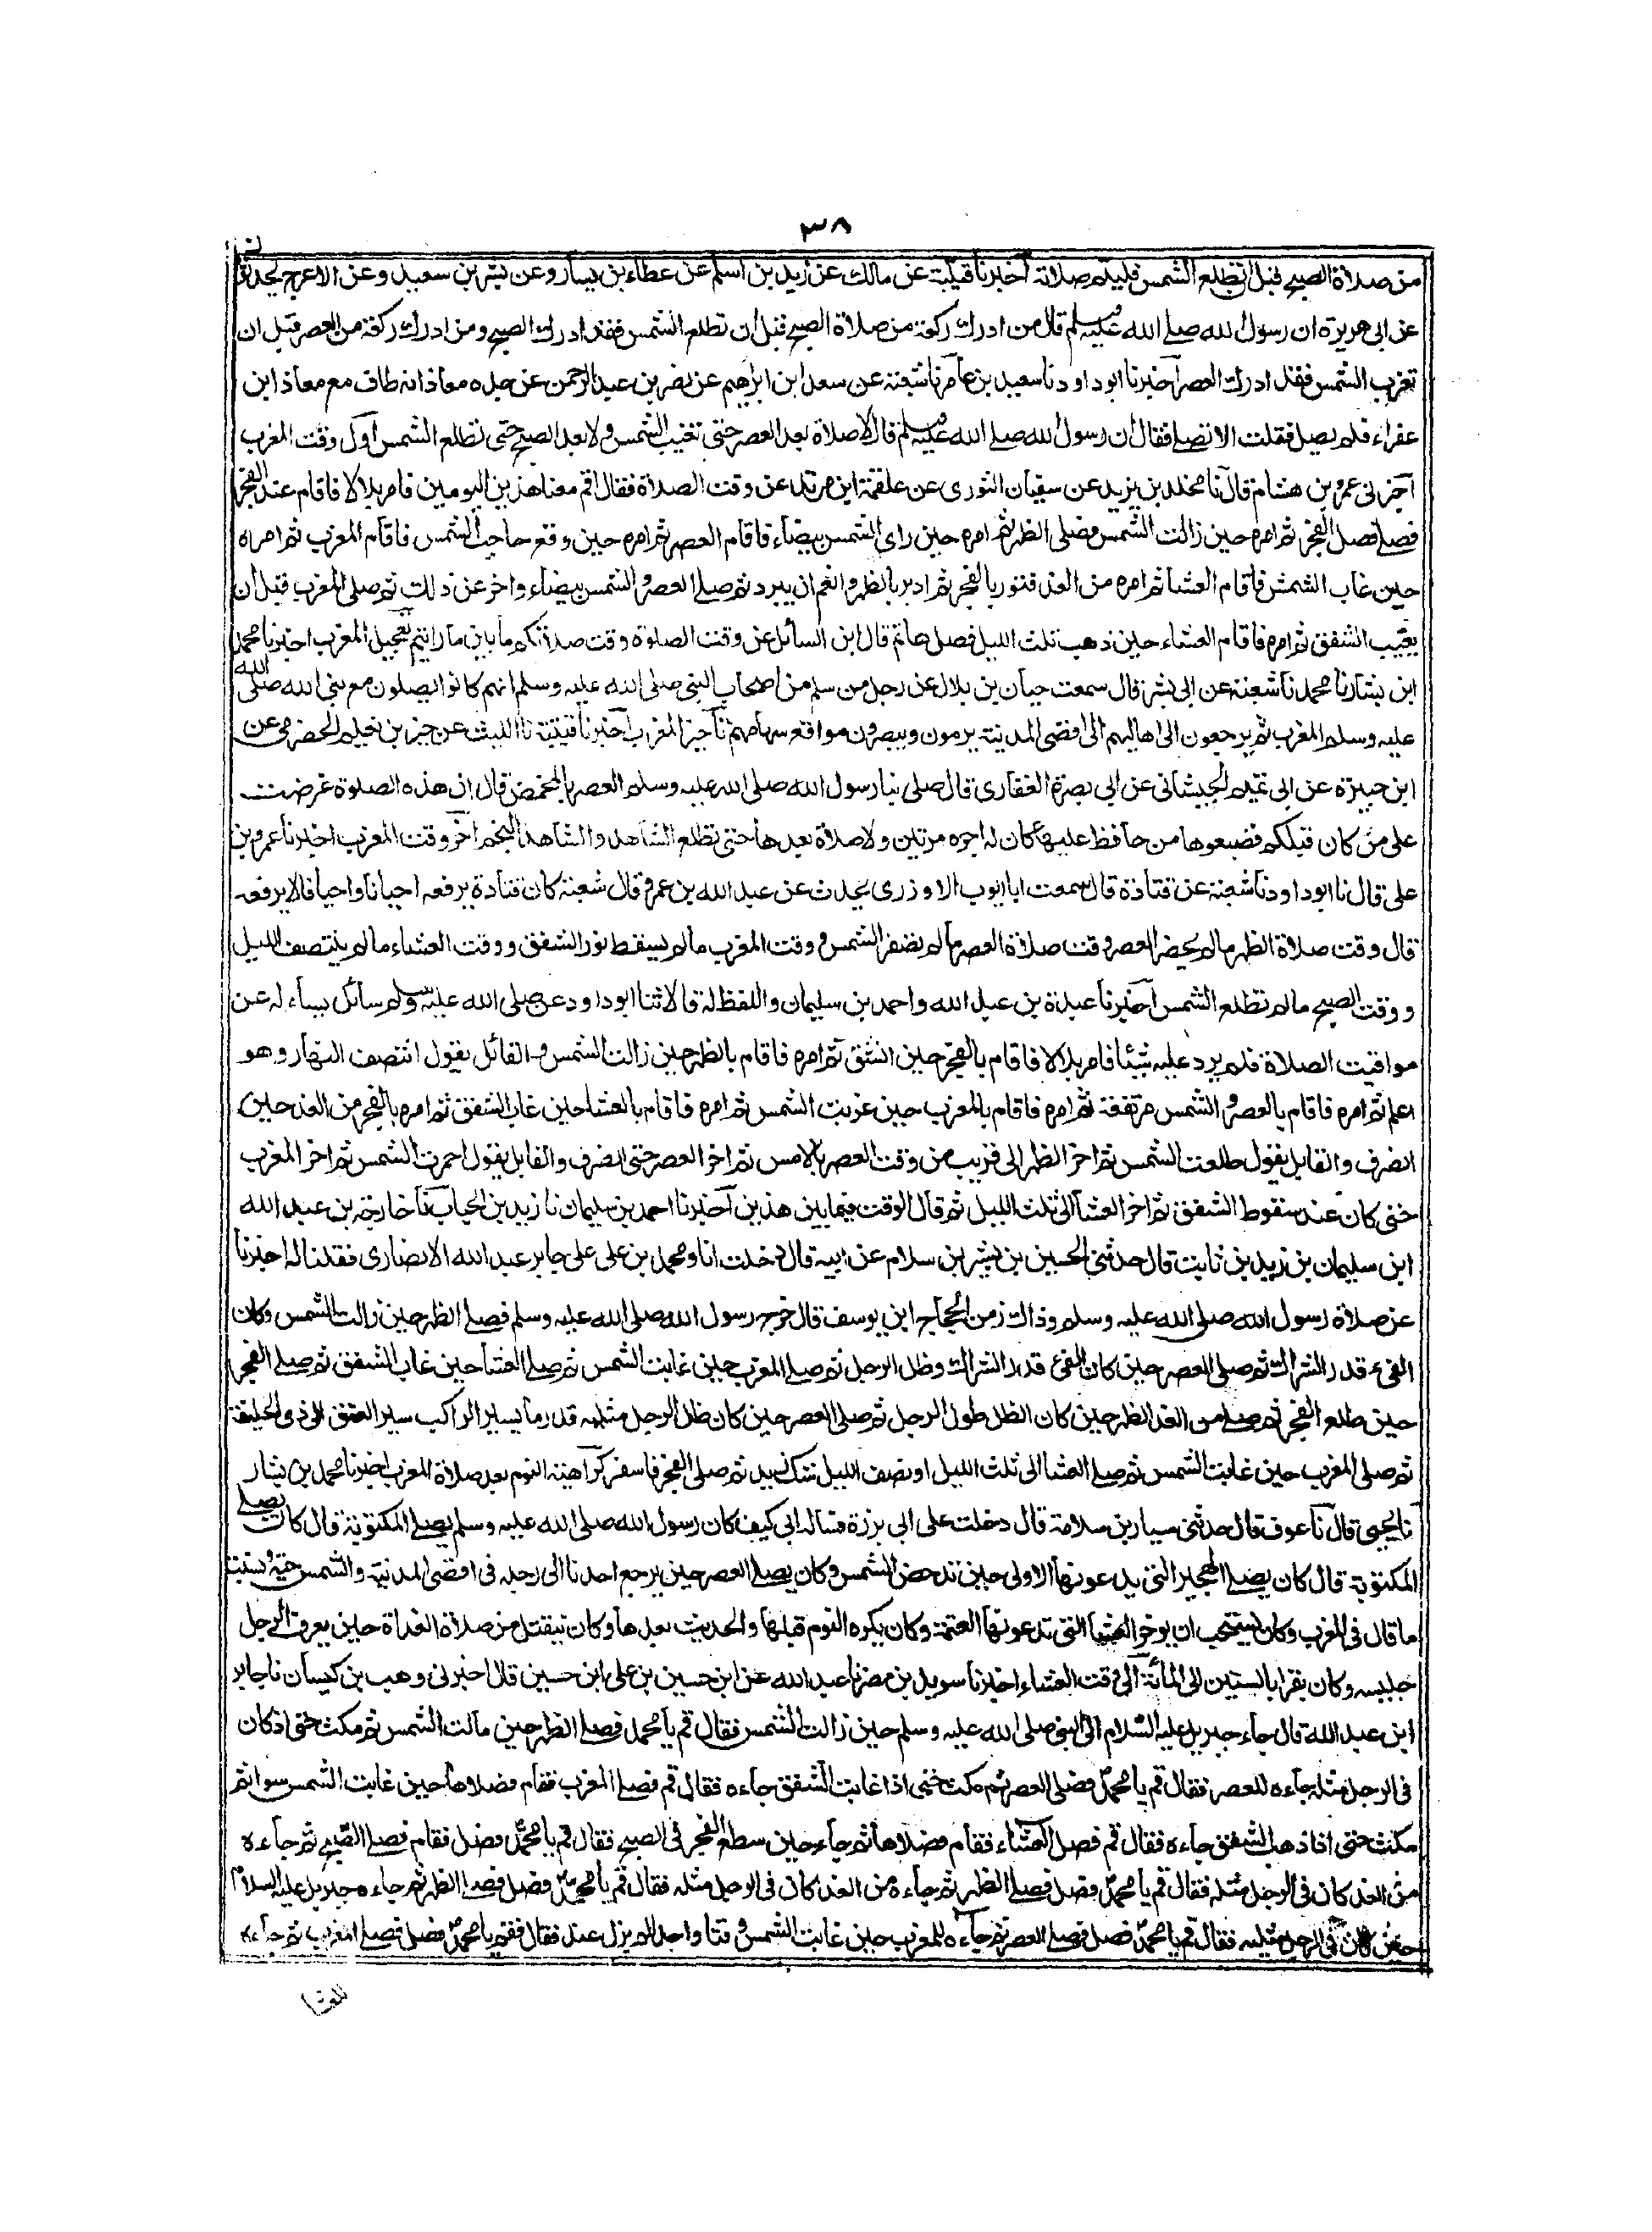 ٣٨
من صلاة الصبح قبل ان تطلع الشمس فليتم صلاته اخبرنا قتيبة عن مالك عن زيد بن اسلم عن عطاء بن يسار وعن بشر بن سعيد وعن الاعرج يحدثون
عن ابى هريرة ان رسول الله صلے الله عليه وسلم قال من ادرك ركعة من صلاة الصبح قبل ان تطلع الشمس فقد ادرك الصبح ومن ادرك ركعة من العصر قبل ان
تغرب الشمس فقد ادرك العصر اخبرنا ابو داود نا سعيد بن عامر نا شعبة عن سعد ابن ابراهيم عن نصر بن عبد الرحمن عن جده معاذ انه طاف مع معاذ ابن
عفراء فلم يصل فقلت الا تصلے فقال ان رسول الله صلے الله عليه وسلم قال لا صلاة بعد العصر حتى تغيب الشمس ولا بعد الصبح حتى تطلع الشمس اول وقت المغرب
اخبرنى عمرو بن هشام قال نا مخلد بن يزيد عن سفيان الثورى عن علقمة ابن مرثد عن وقت الصلاة فقال اقم معنا هذين اليومين فامر بلالا فاقام عند الفجر
فصلے فصل الفجر ثم امره حين زالت الشمس فصلى الظهر ثم امره حين راى الشمس بيضاء فاقام العصر ثم امره حين وقع حاجب الشمس فاقام المغرب ثم امراه
حين غاب الشمش فاقام العشا ثم امره من الغد فنور بالفجر ثم ادبر بالظهر وانعم ان يبرد ثم صلے العصر والشمس بيضاء واخر عن ذلك ثم صلى المغرب قبل ان
يغيب الشفق ثم امره فاقام العشاء حين ذهب ثلث الليل فصل هاتم قال ابن السائل عن وقت الصلوة وقت صلاتكم ما بين ما رايتم تعجيل المغرب اخبرنا محمد
ابن بشار نا محمد نا شعبة عن ابى بشر قال سمعت حيان بن بلال عن رجل من سلم من اصحاب النبى صلى الله عليه وسلم انهم كانوا يصلون مع نبى الله صلى الله
عليه وسلم المغرب ثم يرجعون الى اهاليهم الى اقصى المدينة يرمون ويبصرون مواقع سهامهم تأخير المغرب اخبرنا قتيبة نا الليث عن خير بن نعيم الحضرمى عن
ابن جبيرة عن ابى تميم الجيشانى عن ابى بصرة الغفارى قال صلى بنا رسول الله صلى الله عليه وسلم العصر بالمخمص قال ان هذه الصلوة عرضت
على من كان قبلكم فضيعوها من حافظ عليها كان له اجره مرتين ولا صلاة بعدها حتى تطلع الشاهد والشاهد النجم اخر وقت المغرب اخبرنا عمرو بن
على قال نا ابو داود نا شعبة عن قتادة قال سمعت ابا ايوب الاوزرى يحدث عن عبد الله بن عمرو قال شعبة كان قتادة يرفعه احيانا واحيانا لا يرفعه
قال وقت صلاة الظهر ما لم يحضر العصر وقت صلاة العصر ما لم تصفر الشمس ووقت المغرب ما لم يسقط نور الشفق ووقت العشاء ما لم ينتصف الليل
ووقت الصبح ما لم تطلع الشمس اخبرنا عبدة بن عبد الله واحمد بن سليمان واللفظ له قالا ثنا ابو داود عن صلى الله عليه وسلم سائل يساءله عن
مواقيت الصلاة فلم يرد عليه شيئا فامر بلالا فاقام بالفجر حين انشق ثم امره فاقام بالظهر حين زالت الشمس والقائل يقول انتصف النهار وهو
اعلم ثم امره فاقام بالعصر والشمس مرتفعة ثم امره فاقام بالمغرب حين غربت الشمس ثم امره فاقام بالعشا حين غاب الشفق ثم امره بالفجر من الغد حين
انصرف والقايل يقول طلعت الشمس ثم اخر الظهر الى قريب من وقت العصر بالامس ثم اخر العصر حتى انصرف والقايل يقول احمرت الشمس ثم اخر المغرب
حتى كان عند سقوط الشفق ثم اخر العشا الى ثلث الليل ثم قال الوقت فيما بين هذين اخبرنا احمد بن سليمان نا زيد بن الحباب نا خارجة بن عبد الله
ابن سليمان بن زيد بن ثابت قال حدثنى الحسين بن بشير ابن سلام عن ابيه قال دخلت انا ومحمد بن على على جابر عبد الله الانصارى فقلنا له اخبرنا
عن صلاة رسول الله صلى الله عليه وسلم وذاك زمن الحجاج ابن يوسف قال خرج رسول الله صلى الله عليه وسلم فصلے الظهر حين زالت الشمس وكان
الفىء قدر الشراك ثم صلى العصر حين كان الفىء قدر الشراك وظل الرجل ثم صلے المغرب حين غابت الشمس ثم صلے العشا حين غاب الشفق ثم صلے الفجر
حين طلع الفجر ثم صلے من الغد الظهر حين كان الظل طول الرجل ثم صلى العصر حين كان ظل الرجل مثليه قدر ما يسير الراكب سير العنق الى ذى الحليفة
ثم صلى المغرب حين غابت الشمس ثم صلے العشا الى ثلث الليل او نصف الليل شك زيد ثم صلى الفجر فاسفر كراهية النوم بعد صلاة المغرب اخبرنا محمد بن بشار
نا يحيى قال نا عوف قال حدثنى سيار بن سلامة قال دخلت على ابى برزة فساله ابى كيف كان رسول الله صلى الله عليه وسلم يصلے المكتوبة قال كان يصلے
المكتوبة قال كان يصلے الهجير التى يدعونها الاولى حين تدحض الشمس وكان يصلے العصر حين يرجع احدنا الى رحله فى اقصى المدينة والشمس حية ونسيت
ما قال فى المغرب وكان يستحب ان يوخر العشا التى تدعونها العتمة وكان يكره النوم قبلها والحديث بعدها وكان ينفتل من صلاة الغداة حين يعرف الرجل
جليسه وكان يقرا بالستين الى المائة اول وقت العشاء اخبرنا سويد بن نصر نا عبد الله عن ابن حسين بن على ابن حسين قال اخبرنى وهب بن كيسان نا جابر
ابن عبد الله قال جاء جبريل عليه السلام الى النبى صلى الله عليه وسلم حين زالت الشمس فقال قم يا محمد فصلے الظهر حين مالت الشمس ثم مكث حتى اذ كان
فى الرجل مثله جاءه للعصر فقال قم يا محمد فصلى العصر ثم مكث حتى اذا غابت الشفق جاءه فقال قم فصلے المغرب فقام فصلاها حين غابت الشمس سوا ثم
مكث حتى اذا ذهب الشفق جاءه فقال قم فصل العشاء فقام فصلاها ثم جاء حين سطع الفجر فى الصبح فقال قم يا محمد فصل فقام فصلے الصبح ثم جاءه
من الغد كان فى الرجل مثله فقال قم يا محمد فصل فصلے الظهر ثم جاءه من الغد كان فى الرجل مثله فقال قم يا محمد فصل فصلے الظهر ثم جاءه جبريل عليه السلام
حين كان فى الرجل مثليه فقال قم يا محمد فصل فصلے العصر ثم جاءه للمغرب حين غابت الشمس وقتا واحدا لم يزل عنه فقال فقم يا محمد فصل فصلے المغرب ثم جاءه
للعشا